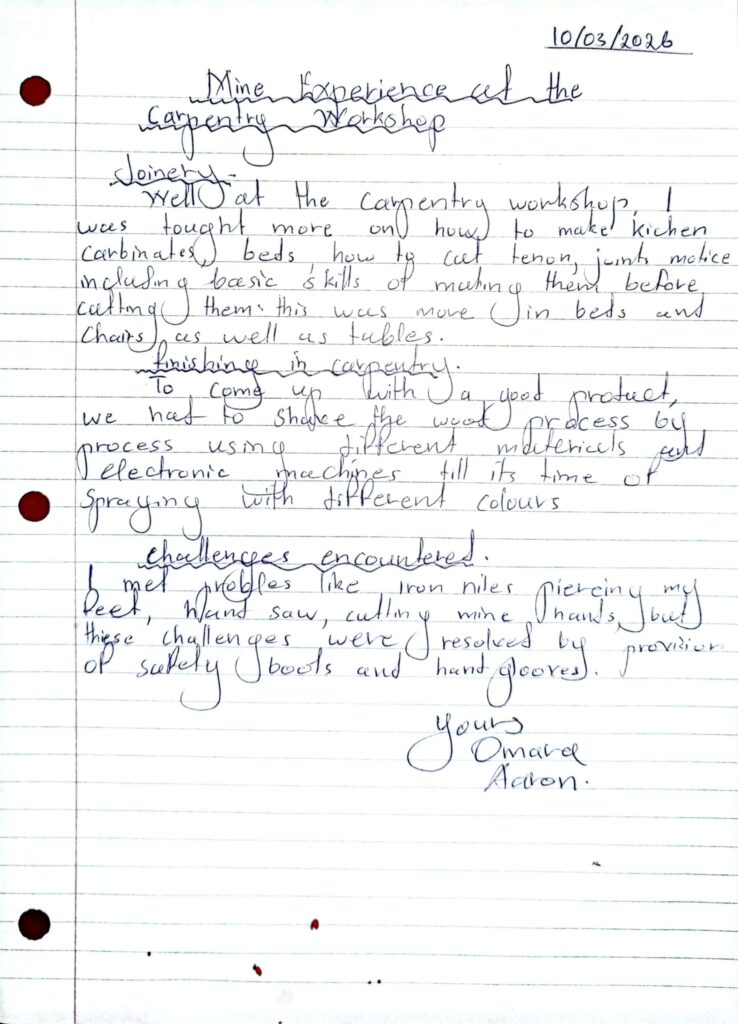 10/03/2026
Mine Experience at the
Carpentry Workshop
Joinery.
Well at the carpentry workshop, I
was tought more on how to make kichen
carbinates, beds, how to cut tenon, joints motice
including basic skills of mating them before
cutting them. this was more in beds and
chairs, as well as tables.
finishing in carpentry.
To come up with a good product,
we had to shape the wood process by
process using different materials and
electronic machines till its time of
spraying with different colours
challenges encountered.
I met probles like iron niles piercing my
feet, hand saw, cutting mine hands, but
these challenges were resolved by provision
of safety boots and hand glooves.
Yours
Omara
Aaron.